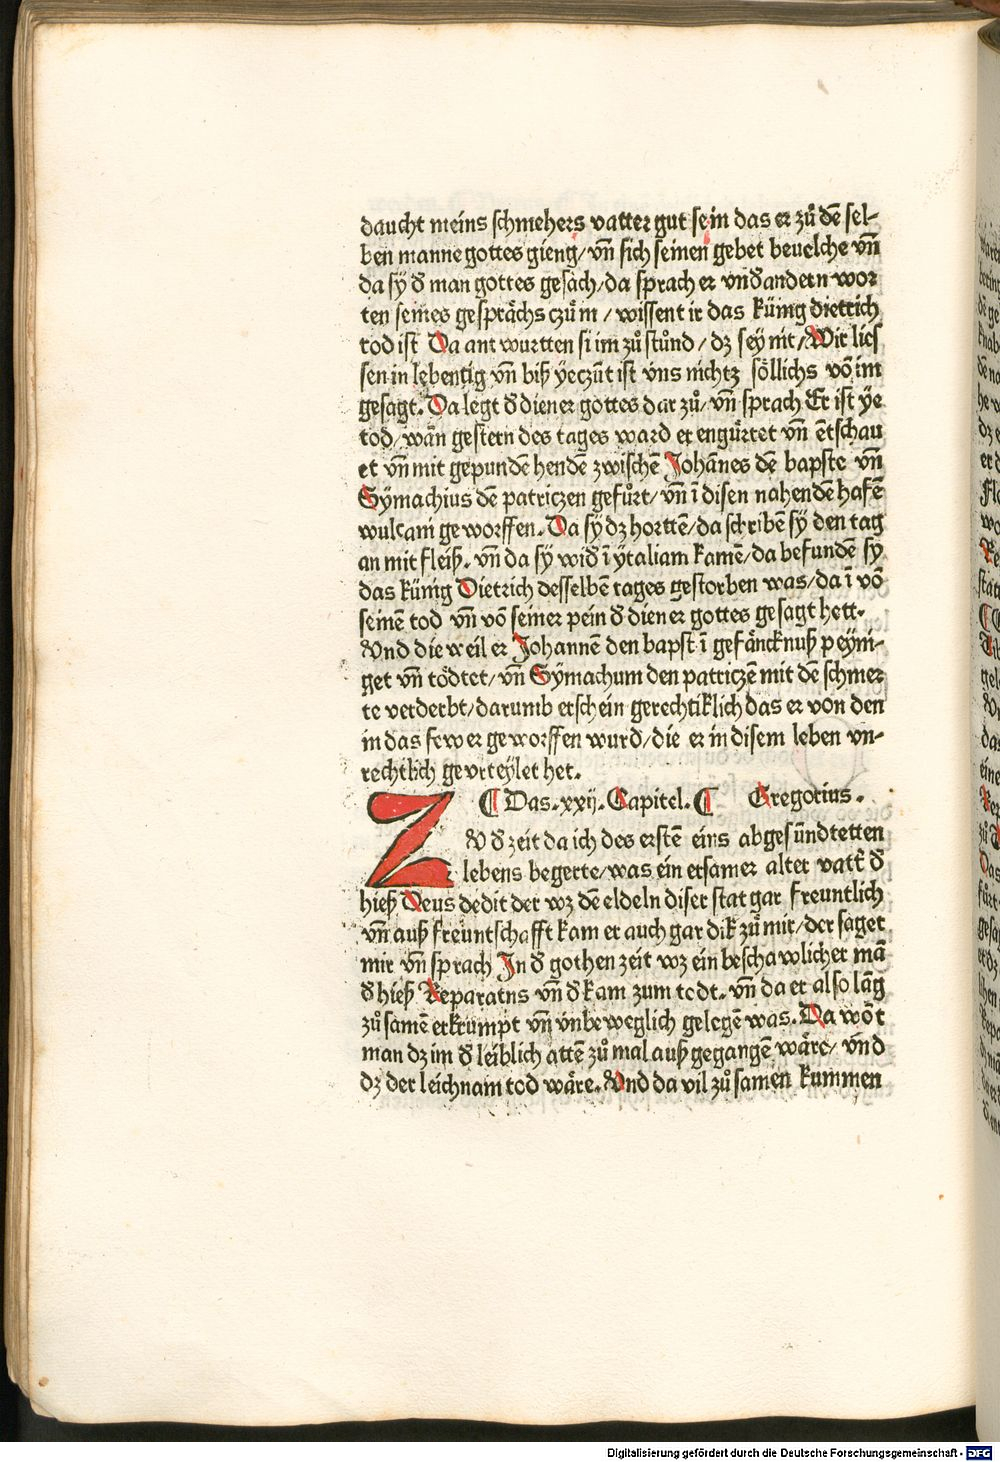 daucht meins schmehers vatter gut sein das er zů dē sel-
ben manne gottes gieng/ vn̄ sich seinen gebet beuelche vn̄
da sÿ đ man gottes gesäch/da sprach er vnđandern wor
ten seines gesprächs czům / wissent ir das künig diettrich
tod ist Da ant wurtten si im zů stůnd / dz sey nit/Wir lies
sen in lebentig vn̄ biß yeczūt ist vns nichtz söllichs vō im
gesagt. Da legt đ diener gottes dar zů/ vn̄ sprach Er ist ÿe
tod/ wān gestern des tages ward er engürtet vn̄ ētschau
et vn̄ mit gepundē hendē zwischē Johānes dē bapste vn̄
Sÿmachius dē patriczen gefůrt/ vn̄ ī disen nahendē hafē
wulcam geworffen. Da sÿ dz hortē/da schribē sÿ den tag
an mit fleiß. vn̄ da sÿ wiđ ī ÿtaliam kamē/da befundē sy
das künig Dietrich desselbē tages gestorben was/da ī vō
seinē tod vn̄ vō seiner pein đ diener gottes gesagt hett.
Vnd die weil er Johannē den bapst ī gefäncknuß peyni-
get vn̄ tödtet/ vn̄ Sÿmachum den patriczē mit dē schmer
te verderbt/darumb erschein gerechtiklich das er von den
in das fewer geworffen wurd/die er in disem leben vn-
rechtlich gevrteÿlet het.
¶ Das .xxij. Capitel. ¶ Gregorius.
ZV đ zeit da ich des erstē eins abgesündtetten
lebens begerte/was ein ersamer alter vatt̄ đ
hieß Deus dedit der wz dē eldeln diser stat gar freuntlich
vn̄ auß freüntschafft kam er auch gar dik zů mir/der saget
mir vn̄ sprach In đ gothen zeit wz ein beschawlicher mā
đ hieß Reparatus vn̄ đ kam zum todt. vn̄ da er also lāg
zůsamē erkrümpt vn̄ vnbeweglich gelegē was. Da wōt
man dz im đ leiblich attē zů mal auß gegangē wäre/ vn̄d
dz der leichnam tod wäre. Vnd da vil zůsamen kummen
Digitalisierung gefördert durch die Deutsche Forschungsgemeinschaft - DFG